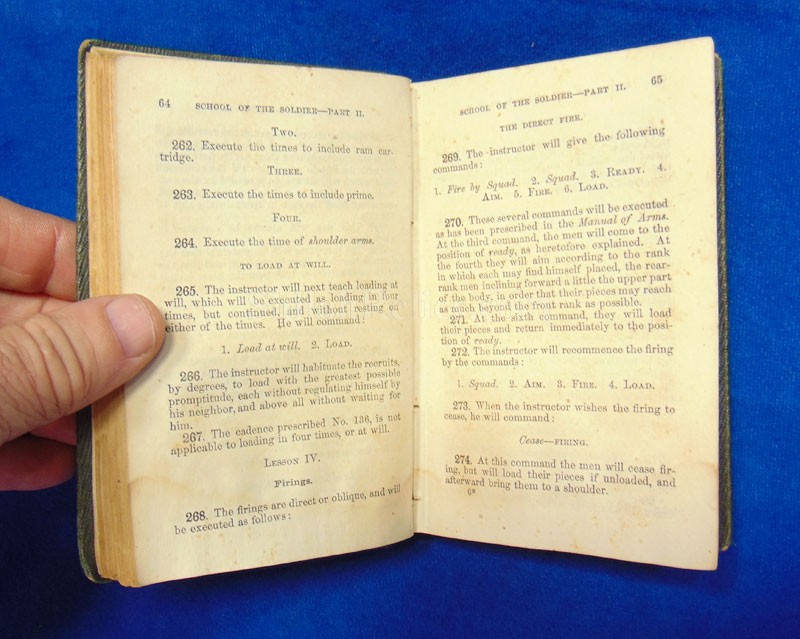 64 SCHOOL OF THE SOLDIER—PART II.
TWO.
262. Execute the times to include ram car-
tridge.
THREE.
263. Execute the times to include prime.
FOUR.
264. Execute the time of shoulder arms.
TO LOAD AT WILL.
265. The instructor will next teach loading at
will, which will be executed as loading in four
times, but continued, and without resting on
either of the times. He will command:
1. Load at will. 2. LOAD.
266. The instructor will habituate the recruits,
by degrees, to load with the greatest possible
promptitude, each without regulating himself by
his neighbor, and above all without waiting for
him.
267. The cadence prescribed No. 136, is not
applicable to loading in four times, or at will.
LESSON IV.
Firings.
268. The firings are direct or oblique, and will
be executed as follows:
SCHOOL OF THE SOLDIER—PART II. 65
THE DIRECT FIRE.
269. The instructor will give the following
commands:
1. Fire by Squad. 2. Squad. 3. READY. 4.
AIM. 5. FIRE. 6. LOAD.
270. These several commands will be executed
as has been prescribed in the Manual of Arms.
At the third command, the men will come to the
position of ready, as heretofore explained. At
the fourth they will aim according to the rank
in which each may find himself placed, the rear-
rank men inclining forward a little the upper part
of the body, in order that their pieces may reach
as much beyond the front rank as possible.
271. At the sixth command, they will load
their pieces and return immediately to the posi-
tion of ready.
272. The instructor will recommence the firing
by the commands:
1. Squad. 2. AIM. 3. FIRE. 4. LOAD.
273. When the instructor wishes the firing to
cease, he will command:
Cease—FIRING.
274. At this command the men will cease fir-
ing, but will load their pieces if unloaded, and
afterward bring them to a shoulder.
6*